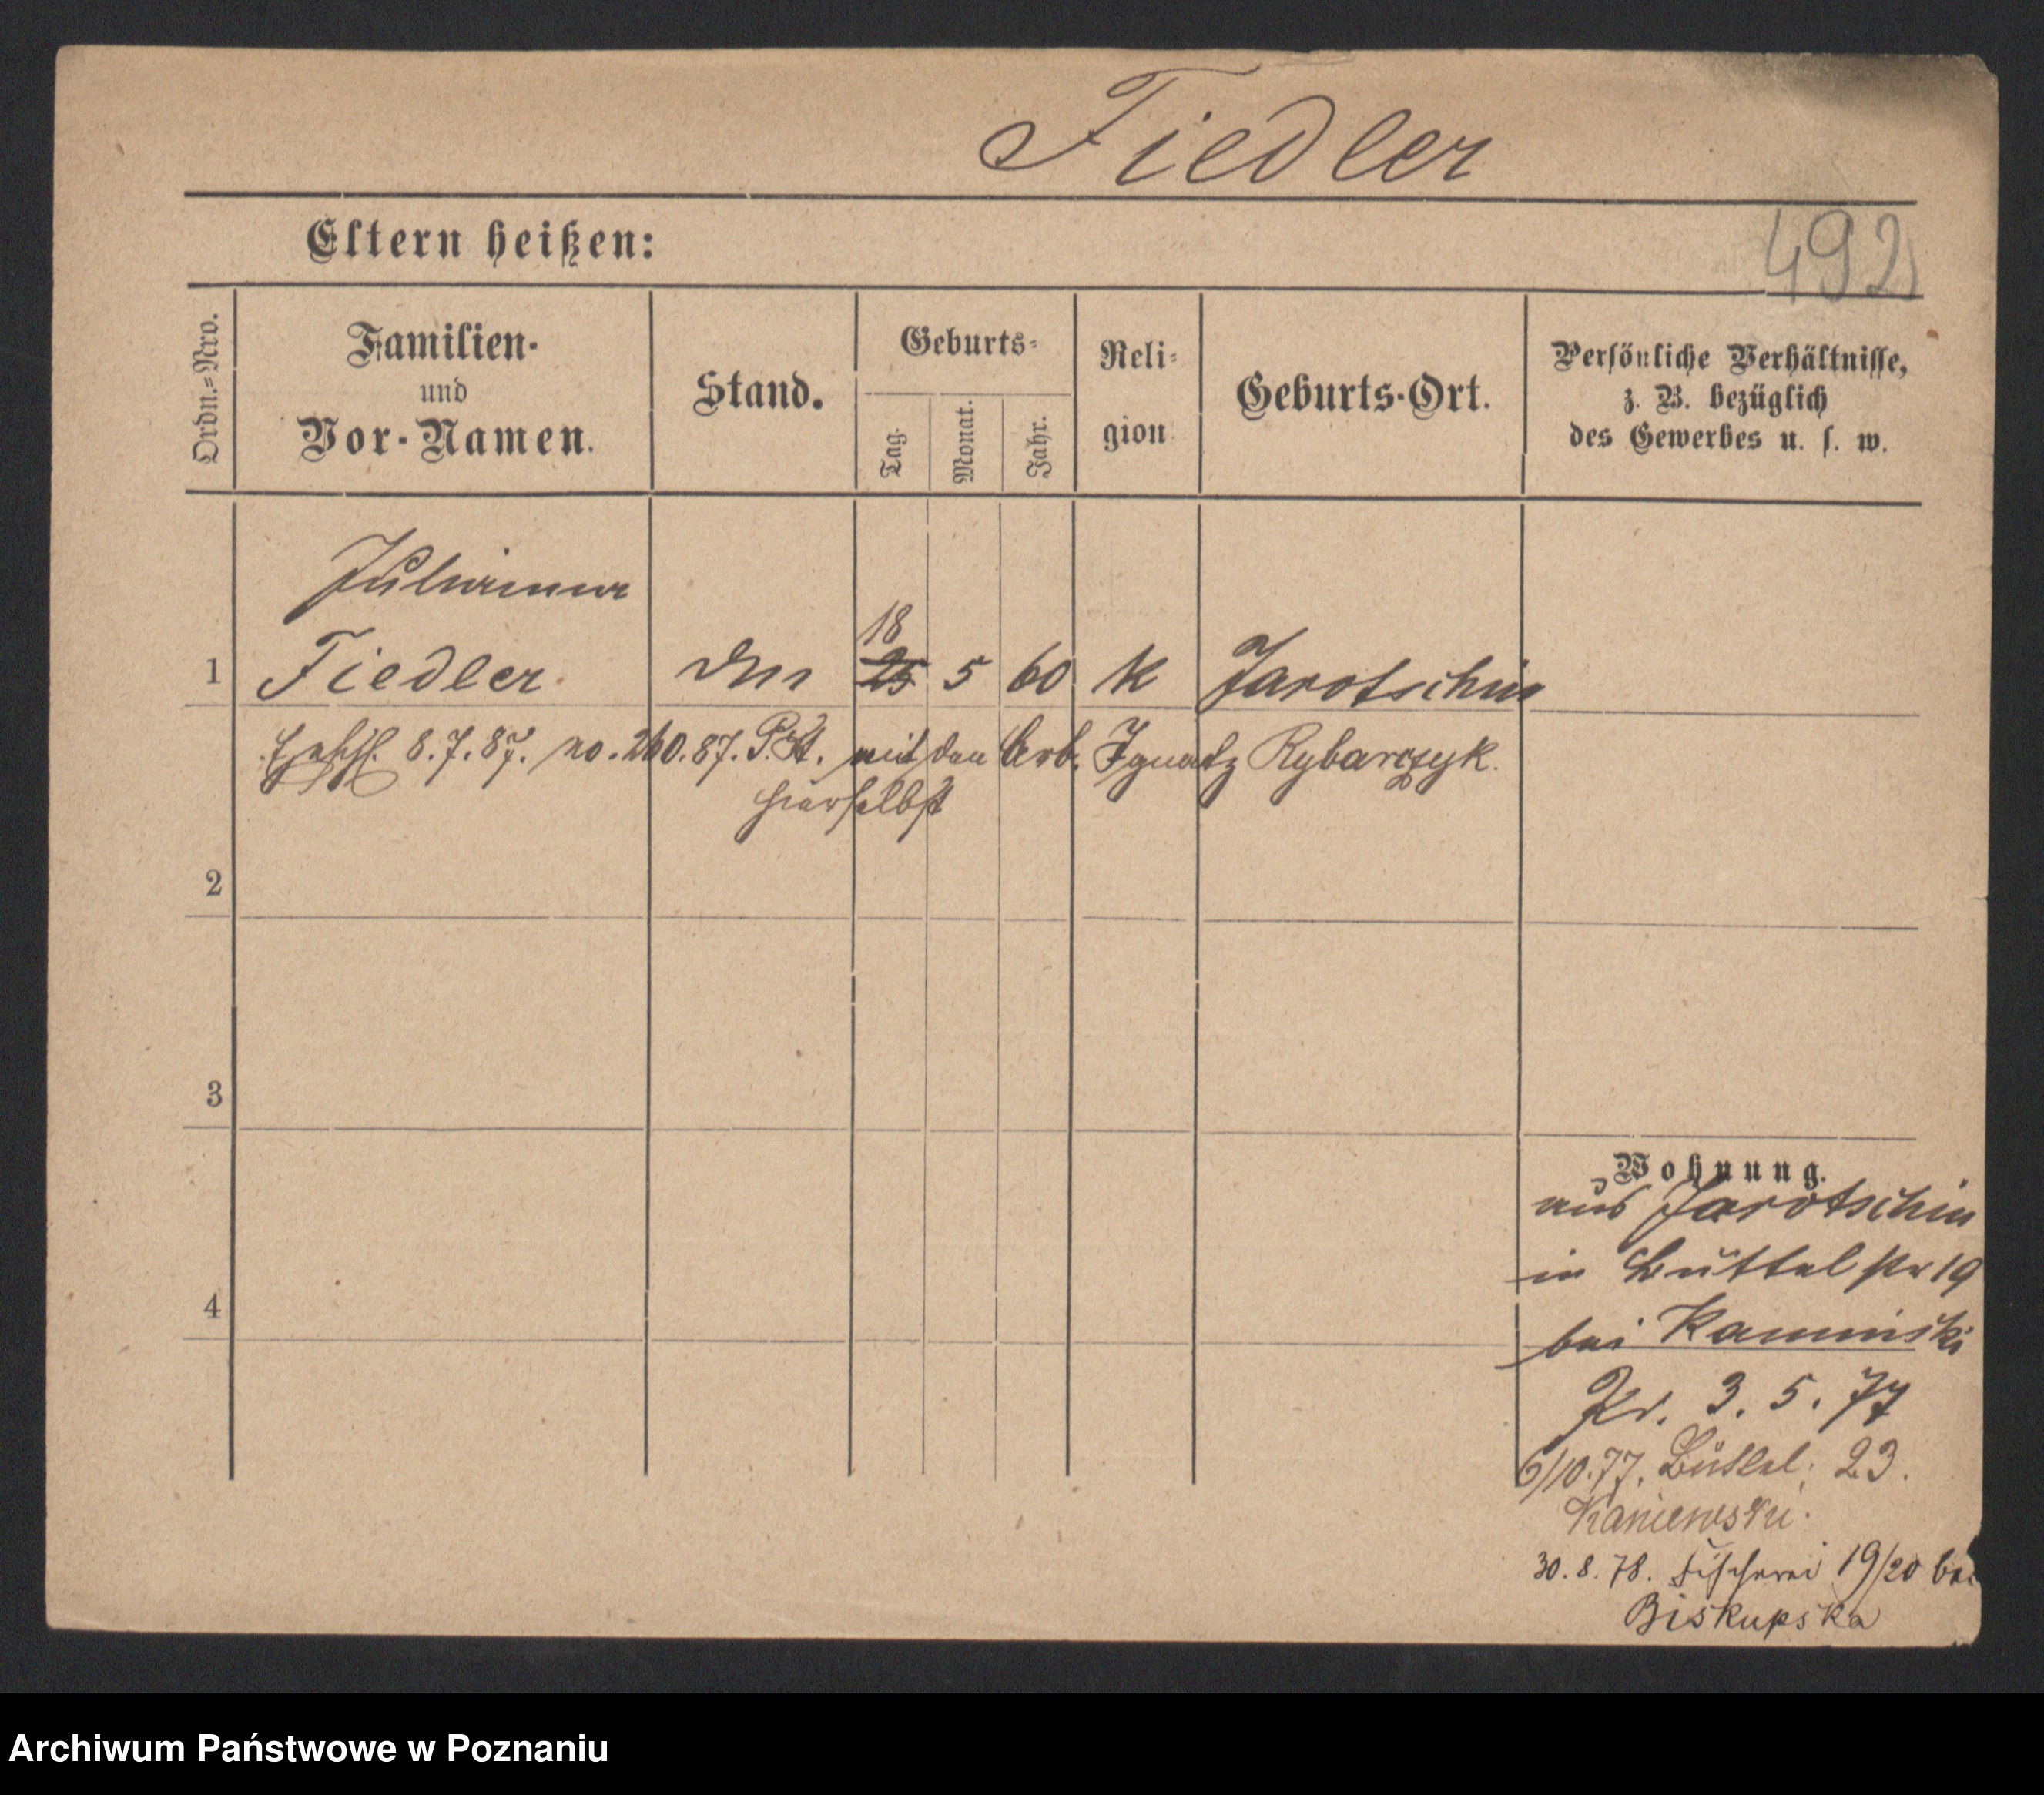 Fiedler
492
Eltern heißen:
Ordn.=Nro.
Familien-
und
Vor-Namen.
Stand.
Geburts=
Tag.
Monat.
Jahr.
Reli=
gion
Geburts-Ort.
Persönliche Verhältnisse,
z. B. bezüglich
des Gewerbes u. s. w.
Julianna
18
1 Fiedler 25 5 60 K Jarotschin
8.7.87. no. 260.87. mit den Arb. Ignatz Rybarczyk.
hierselbst
2
3
Wohnung.
aus Jarotschin
in Büttelstr 19
4
bei Kaminski
3. 5. 77
6/10.77. Büttel. 23.
Kaniewski.
30. 8. 78. Fischerei 19/20 bei
Biskupska
Archiwum Państwowe w Poznaniu